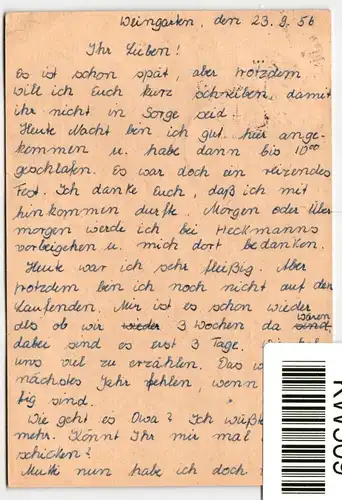 Weingarten, den 23.9.56
Ihr Lieben!
Es ist schon spät, aber trotzdem
will ich Euch kurz schreiben, damit
ihr nicht in Sorge seid.
Heute Nacht bin ich gut hier ange-
kommen u. habe dann bis 10⁰⁰
geschlafen. Es war doch ein reizendes
Fest. Ich danke Euch, daß ich mit
hinkommen durfte. Morgen oder Über
morgen werde ich bei Heckmanns
vorbeigehen u. mich dort bedanken.
Heute war ich sehr fleißig. Aber
trotzdem bin ich noch nicht auf dem
Laufenden. Mir ist es schon wieder
als ob wir wieder 3 Wochen da sind, waren
dabei sind es erst 3 Tage. Wir
uns viel zu erzählen. Das
nächstes Jahr fehlen, wenn
tig sind.
Wie geht es Owa? Ich wüßte
mehr. Könnt Ihr mir mal
schicken?
Mutti nun habe ich doch
RW509